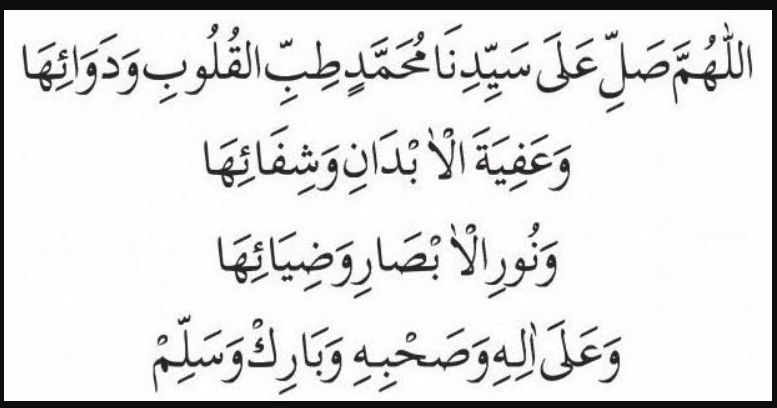 اللّٰهُمَّ صَلِّ عَلَى سَيِّدِنَا مُحَمَّدٍ طِبِّ الْقُلُوبِ وَدَوَائِهَا
وَعَفِيَةَ الْاَبْدَانِ وَشِفَائِهَا
وَنُورِ الْاَبْصَارِ وَضِيَائِهَا
وَعَلَى اٰلِهِ وَصَحْبِهِ وَبَارِكْ وَسَلِّمْ